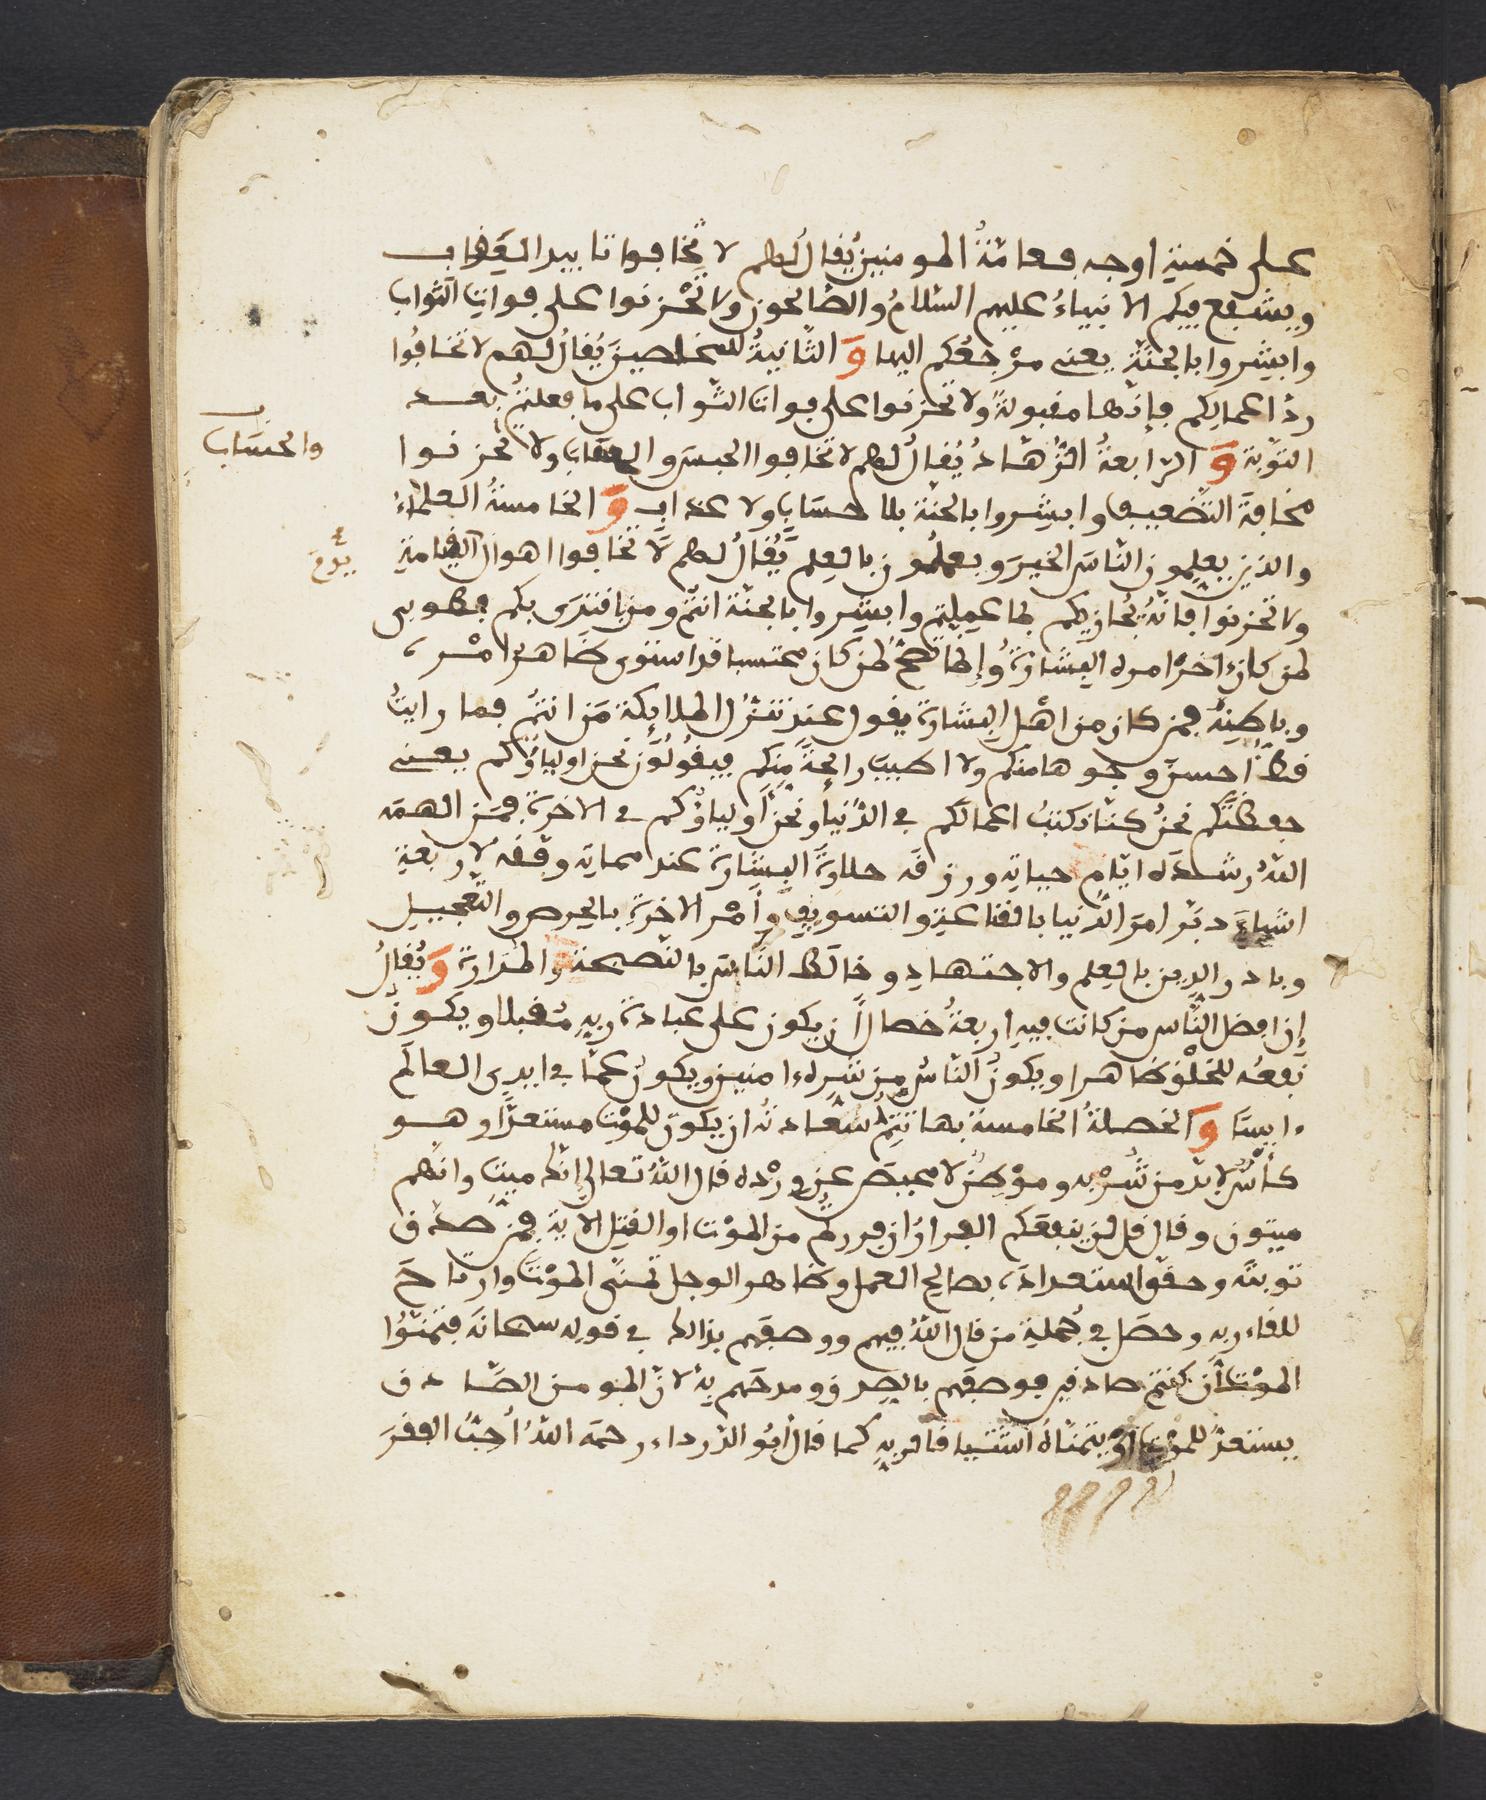 على خمسة اوجه فعامّةُ المومنين يُقال لهم لا تخافوا تابيد العذاب
ويشفع فيكم الانبياءُ عليهم السّلامُ والصّالحون ولا تحْزنوا على فوات الثواب
وابشروا بالجنّة يعني مرْجعُكم اليها وَ الثّانيةُ للمخلصينَ يُقالُ لهم لا تخافُوا
ردّ اعمالِكم فإنّها مقبولةٌ ولا تحزنوا على فوات الثّواب على ما فعلتم بعد
التوْبة وَ الرّابعةُ الزُّهّادُ يُقالُ لهم لا تخافوا الحبسَ و ولا تحزنوا
والحسَاب
مخافةَ التضعيف وابشروا بالجنّة بلا حسَابٍ ولا عذابٍ وَ الخامسةُ العلماءُ
والذين يعلِّمون النّاسَ الخيرَ ويعملُون بالعِلم يُقالُ لهم لا تخافوا اهوال القيامةِ
يومَ
ولا تحزنوا فإنّهُ يُجازيكم بما عملتم وابشروا بالجنّة انتُم ومن اقتدَى بكم فطوبى
لمن كان ءاخرُ امره البِشارةَ وإنما تصحُّ لمن كان محتسبا قد استوى ظاهرُ امْره
وباطنِه فمن كان من اهْل البِشارة يقول عند تنزّل الملايكة مَن انتُم فما رايتُ
قطّ احسن وجوها منكم ولا اطيبَ رايحةً مِنكم فيقُولُون نحن اولياؤكم يعني
حفظتكم نحنُ كنّا نكتبُ اعمالكم في الدّنيا ونحنُ أولياؤكم في الاخرة فمن الهمَه
اللهُ رشدَه ايّامَ حياتِه ورزقَه حلاوةَ البِشارة عند مماتِه وفّقه لاربعةِ
اشياءَ دبّر امرَ الدّنيا بالقناعةِ والتسويفِ وأمْر الاخرةِ بالحِرص والتّعجيل
وبادر الدين بالعِلم والاجتهادِ وخالَط النّاسَ بالنّصيحة والمُدارة وَ يُقالُ
إن افضل النّاس من كانت فيهِ اربعةُ خصالٍ أن يكون على عبادة ربهِ مُقبلا ويكونُ
نفعُه للخلْق ظاهرا ويكونُ النّاسُ من شرِّه ءامنين ويكون عمّا في ايدي العالَم
ءايسًا وَ الخصلةُ الخامسة بها تتِمُّ سَعادتُه ان يكون للموْت مستعدًّا وهو
كأسٌ لا بُدّ من شُرْبه وموْطِنٌ لا محيصَ عن ورْده قال اللهُ تعالى إنّك ميت وانهم
ميتون وقال قل لن ينفعَكم الفِرارُ ان فررتم من الموْت او القتلِ الاية فمن صدَق
توبتَه وحقّق استعدادَه بصالح العمل وظاهر الوجل تمنّى الموْتَ وارتاحَ
للقاء ربه وحصَل في جُملةِ من قال اللهُ فيهم ووصفَهم بذالك في قوله سبحانه فتمنّوُا
الموْت ان كنتم صادقين فوصفَهم بالصِدق ومدحَهم بهِ لانّ المومن الصّادق
يستعدّ للموْت أوْ يتمنّاهُ اشتيا قا لربهِ كما قال أبُو الدّرداء رحمه اللهُ أُحِبُّ الفقرَ